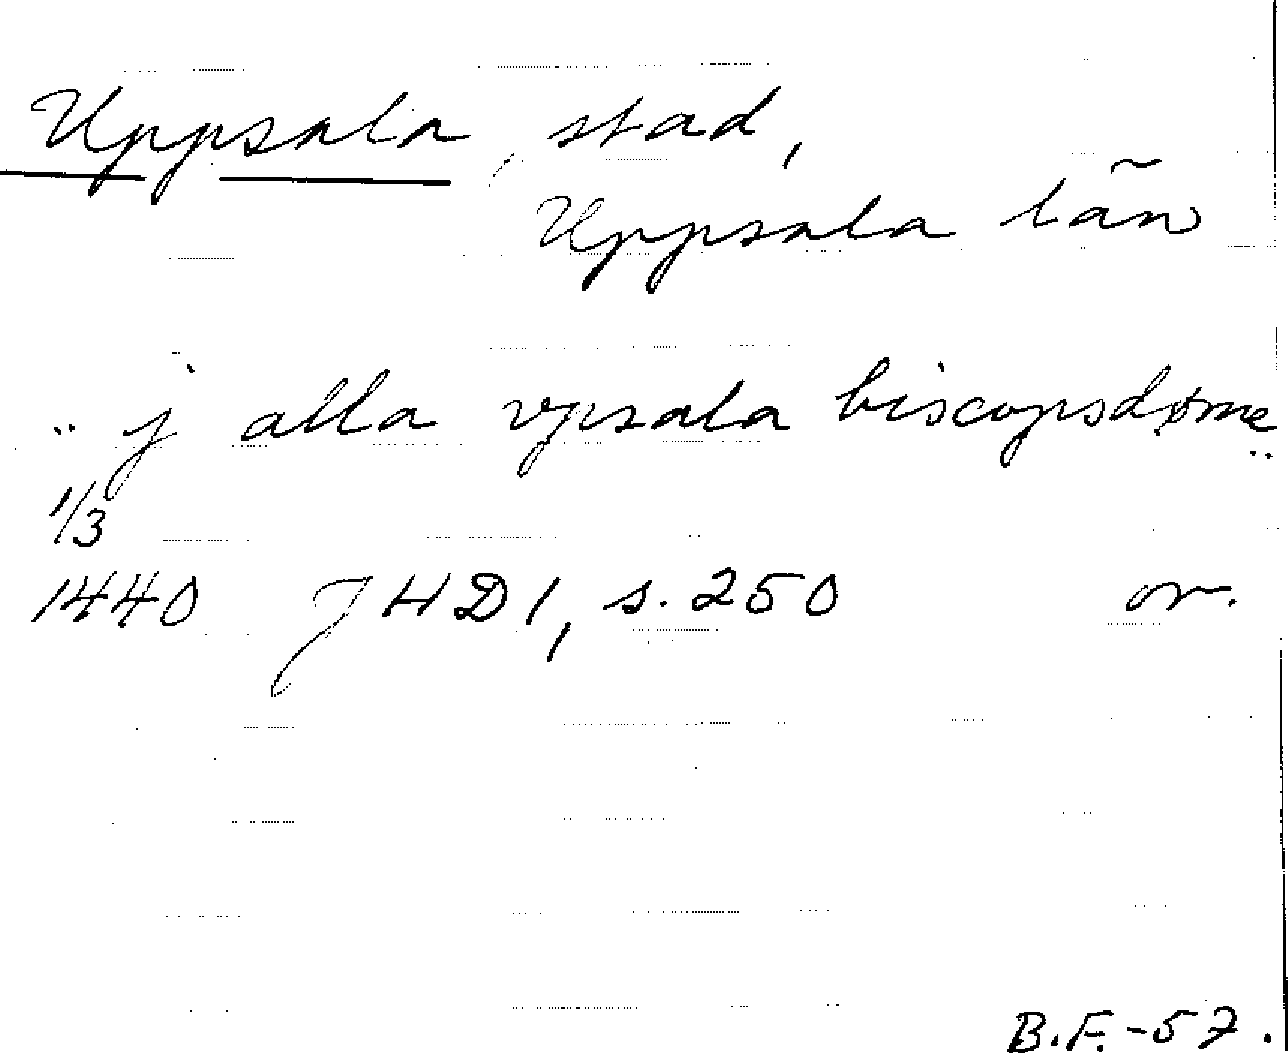 Uppsala, stad,
Uppsala län
.. j alla vpsala biscopsdøme ..
1/3
1440 JHD 1, s. 250 or.
B.F. -57.